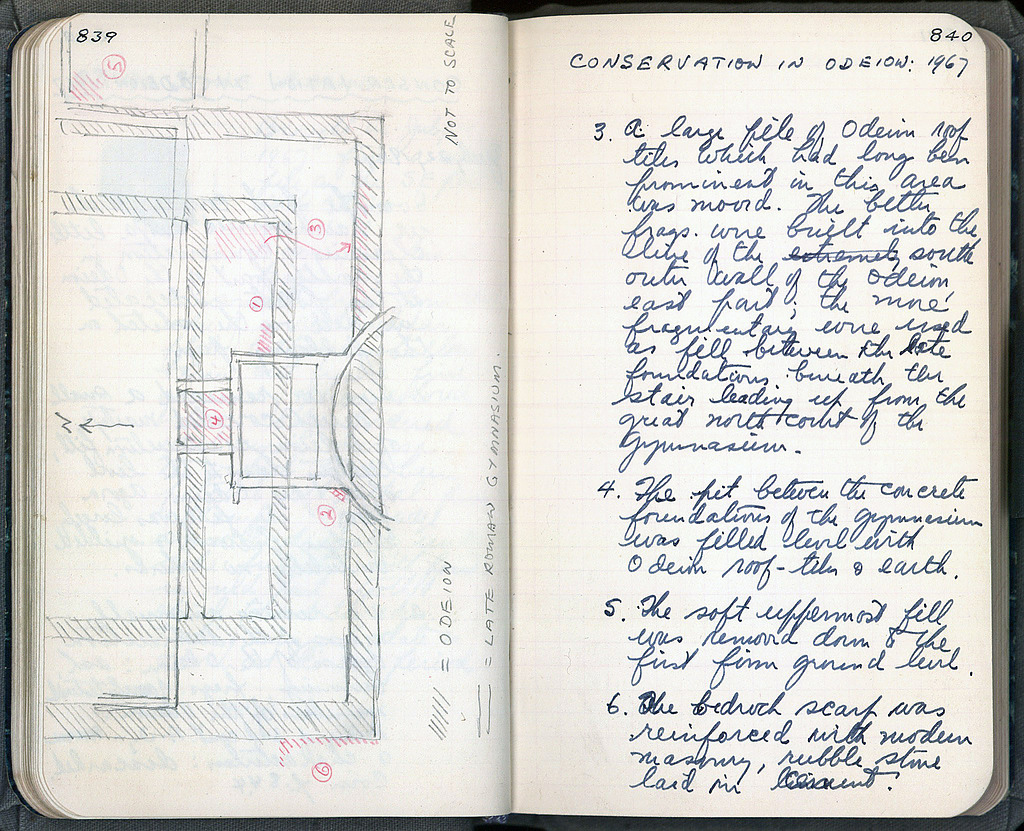 839
5
NOT TO SCALE
3
1
4
N
2
6
///// = ODEION
= LATE ROMAN GYMNASIUM.
840
CONSERVATION IN ODEION: 1967
3. A large pile of Odeion roof
tiles which had long been
prominent in this area
was moved. The better
frags. were built into the
line of the extremely south
outer wall of the Odeion
east part; the more
fragmentary were used
as fill between the late
foundations beneath the
stair leading up from the
great north court of the
Gymnasium.
4. The pit between the concrete
foundations of the gymnasium
was filled level with
Odeion roof-tiles & earth.
5. The soft uppermost fill
was removed down to the
first firm ground level.
6. The bedrock scarp was
reinforced with modern
masonry, rubble stone
laid in cement.